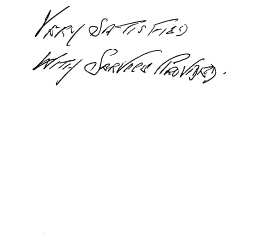 VERY SATISFIED
WITH SERVICE PROVIDED.